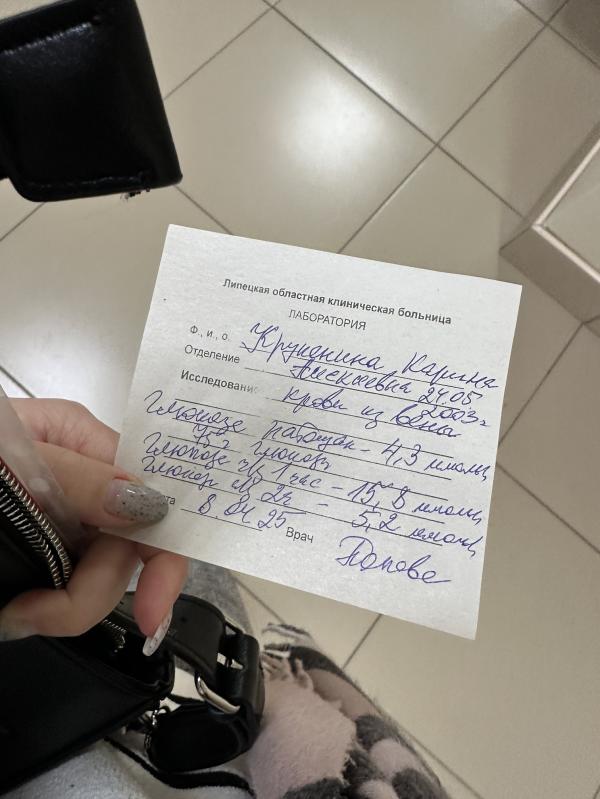 Липецкая областная клиническая больница
ЛАБОРАТОРИЯ
Ф., и., о. Крупенина Карина
Алексеевна 24.05
Отделение 2003г
Исследование крови из вены
Глюкоза натощак - 4,3 ммоль
75 г глюкозы
Глюкоза ч/з 1 час - 15,8 ммоль
Глюкоза ч/з 2ч - 5,2 ммоль
8 04 25
Врач Попова